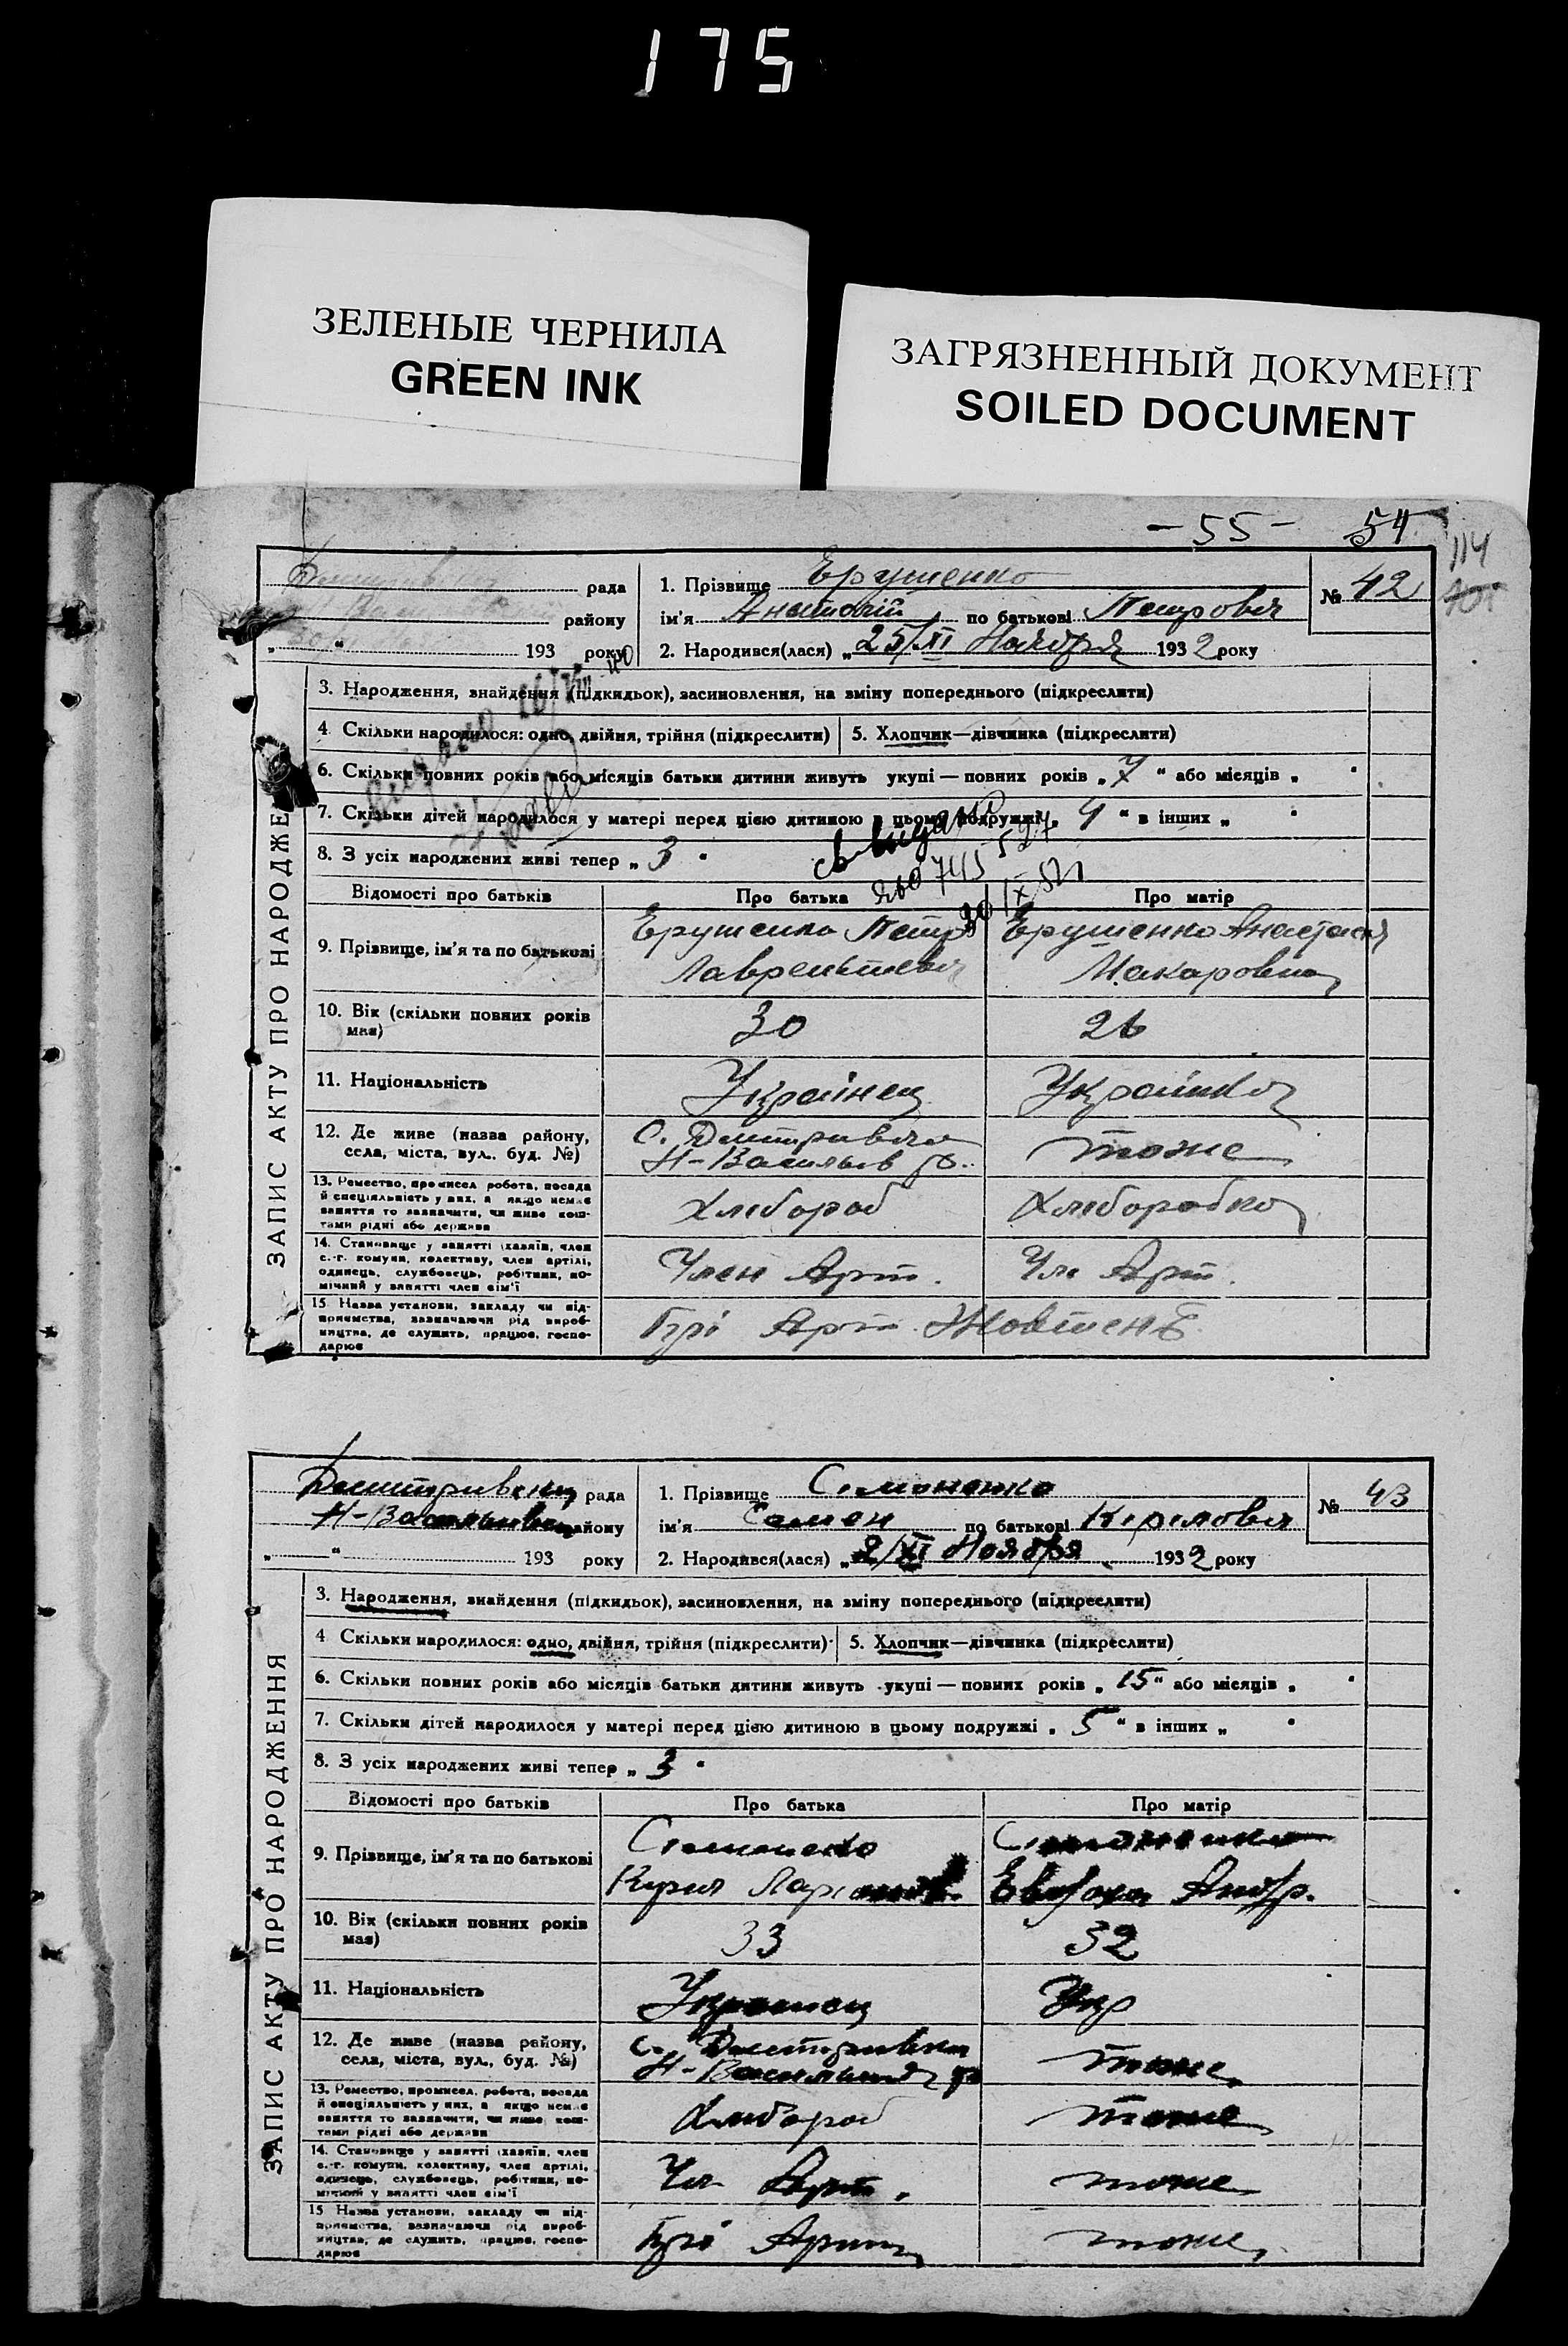 175
ЗЕЛЕНЫЕ ЧЕРНИЛА
GREEN INK
ЗАГРЯЗНЕННЫЙ ДОКУМЕНТ
SOILED DOCUMENT
- 55 - 54
114
рада
району
„ “ 193 року
1. Прізвище Ерушенко
ім'я Анатолій по батькові Петрович
2. Народився(лася) „25/XI Ноября 1932 року
№ 42
ЗАПИС АКТУ ПРО НАРОДЖЕ
3. Народження, знайдення (підкидьок), засиновлення, на зміну попереднього (підкреслити)
4 Скільки народилося: одно, двійня, трійня (підкреслити) 5. Хлопчик—дівчинка (підкреслити)
6. Скільки повних років або місяців батьки дитини живуть укупі — повних років „ 7 “ або місяців „ “
7. Скільки дітей народилося у матері перед цією дитиною в цьому подружжі „ 4 “ в інших „ “
8. З усіх народжених живі тепер „ 3 “
Відомості про батьків Про батька Про матір
9. Прізвище, ім'я та по батькові
Ерушенко Петро
Лаврентьевич
Ерушенко Анастасия
Макаровна
10. Вік (скільки повних років
має)
30 26
11. Національність Украінец Украінка
12. Де живе (назва району,
села, міста, вул., буд. №)
С. Дмитривка
Н-Васильев р.
тоже
13. Ремество, промисел, робота, посада
й спеціяльність у них, а якщо немає
заняття то зазначити, чи живе кош-
тами рідні або держави
Хлебороб Хлеборобка
14. Становище у занятті (хазяїн, член
с.-г. комуни, колективу, член артілі,
одинець, службовець, робітник, по-
мічний у занятті член сім'ї
Член Арт. Чле Арт.
15 Назва установи, закладу чи під-
приємства, зазначаючи рід вироб-
ництва, де служить, працює, госпо-
дарює
Прі Арт.
Дмитривка рада
Н-Васильевск району
„ “ 193 року
1. Прізвище Симоненко
ім'я Семен по батькові Кирилович
2. Народився(лася) „2/XI Ноября 1932 року
№ 43
ЗАПИС АКТУ ПРО НАРОДЖЕННЯ
3. Народження, знайдення (підкидьок), засиновлення, на зміну попереднього (підкреслити)
4 Скільки народилося: одно, двійня, трійня (підкреслити) 5. Хлопчик—дівчинка (підкреслити)
6. Скільки повних років або місяців батьки дитини живуть укупі — повних років „ 15 “ або місяців „ “
7. Скільки дітей народилося у матері перед цією дитиною в цьому подружжі „ 5 “ в інших „ “
8. З усіх народжених живі тепер „ 3 “
Відомості про батьків Про батька Про матір
9. Прізвище, ім'я та по батькові
Симоненко
Симоненко
10. Вік (скільки повних років
має)
33 32
11. Національність Украинец Укр
12. Де живе (назва району,
села, міста, вул., буд. №)
с. Дмитривка
тоже
13. Ремество, промисел, робота, посада
й спеціяльність у них, а якщо немає
заняття то зазначити, чи живе кош-
тами рідні або держави
Хлебороб тоже
14. Становище у занятті (хазяїн, член
с.-г. комуни, колективу, член артілі,
одинець, службовець, робітник, по-
мічний у занятті член сім'ї
Чле Арт. тоже
15 Назва установи, закладу чи під-
приємства, зазначаючи рід вироб-
ництва, де служить, працює, госпо-
дарює
Прі Арт тоже